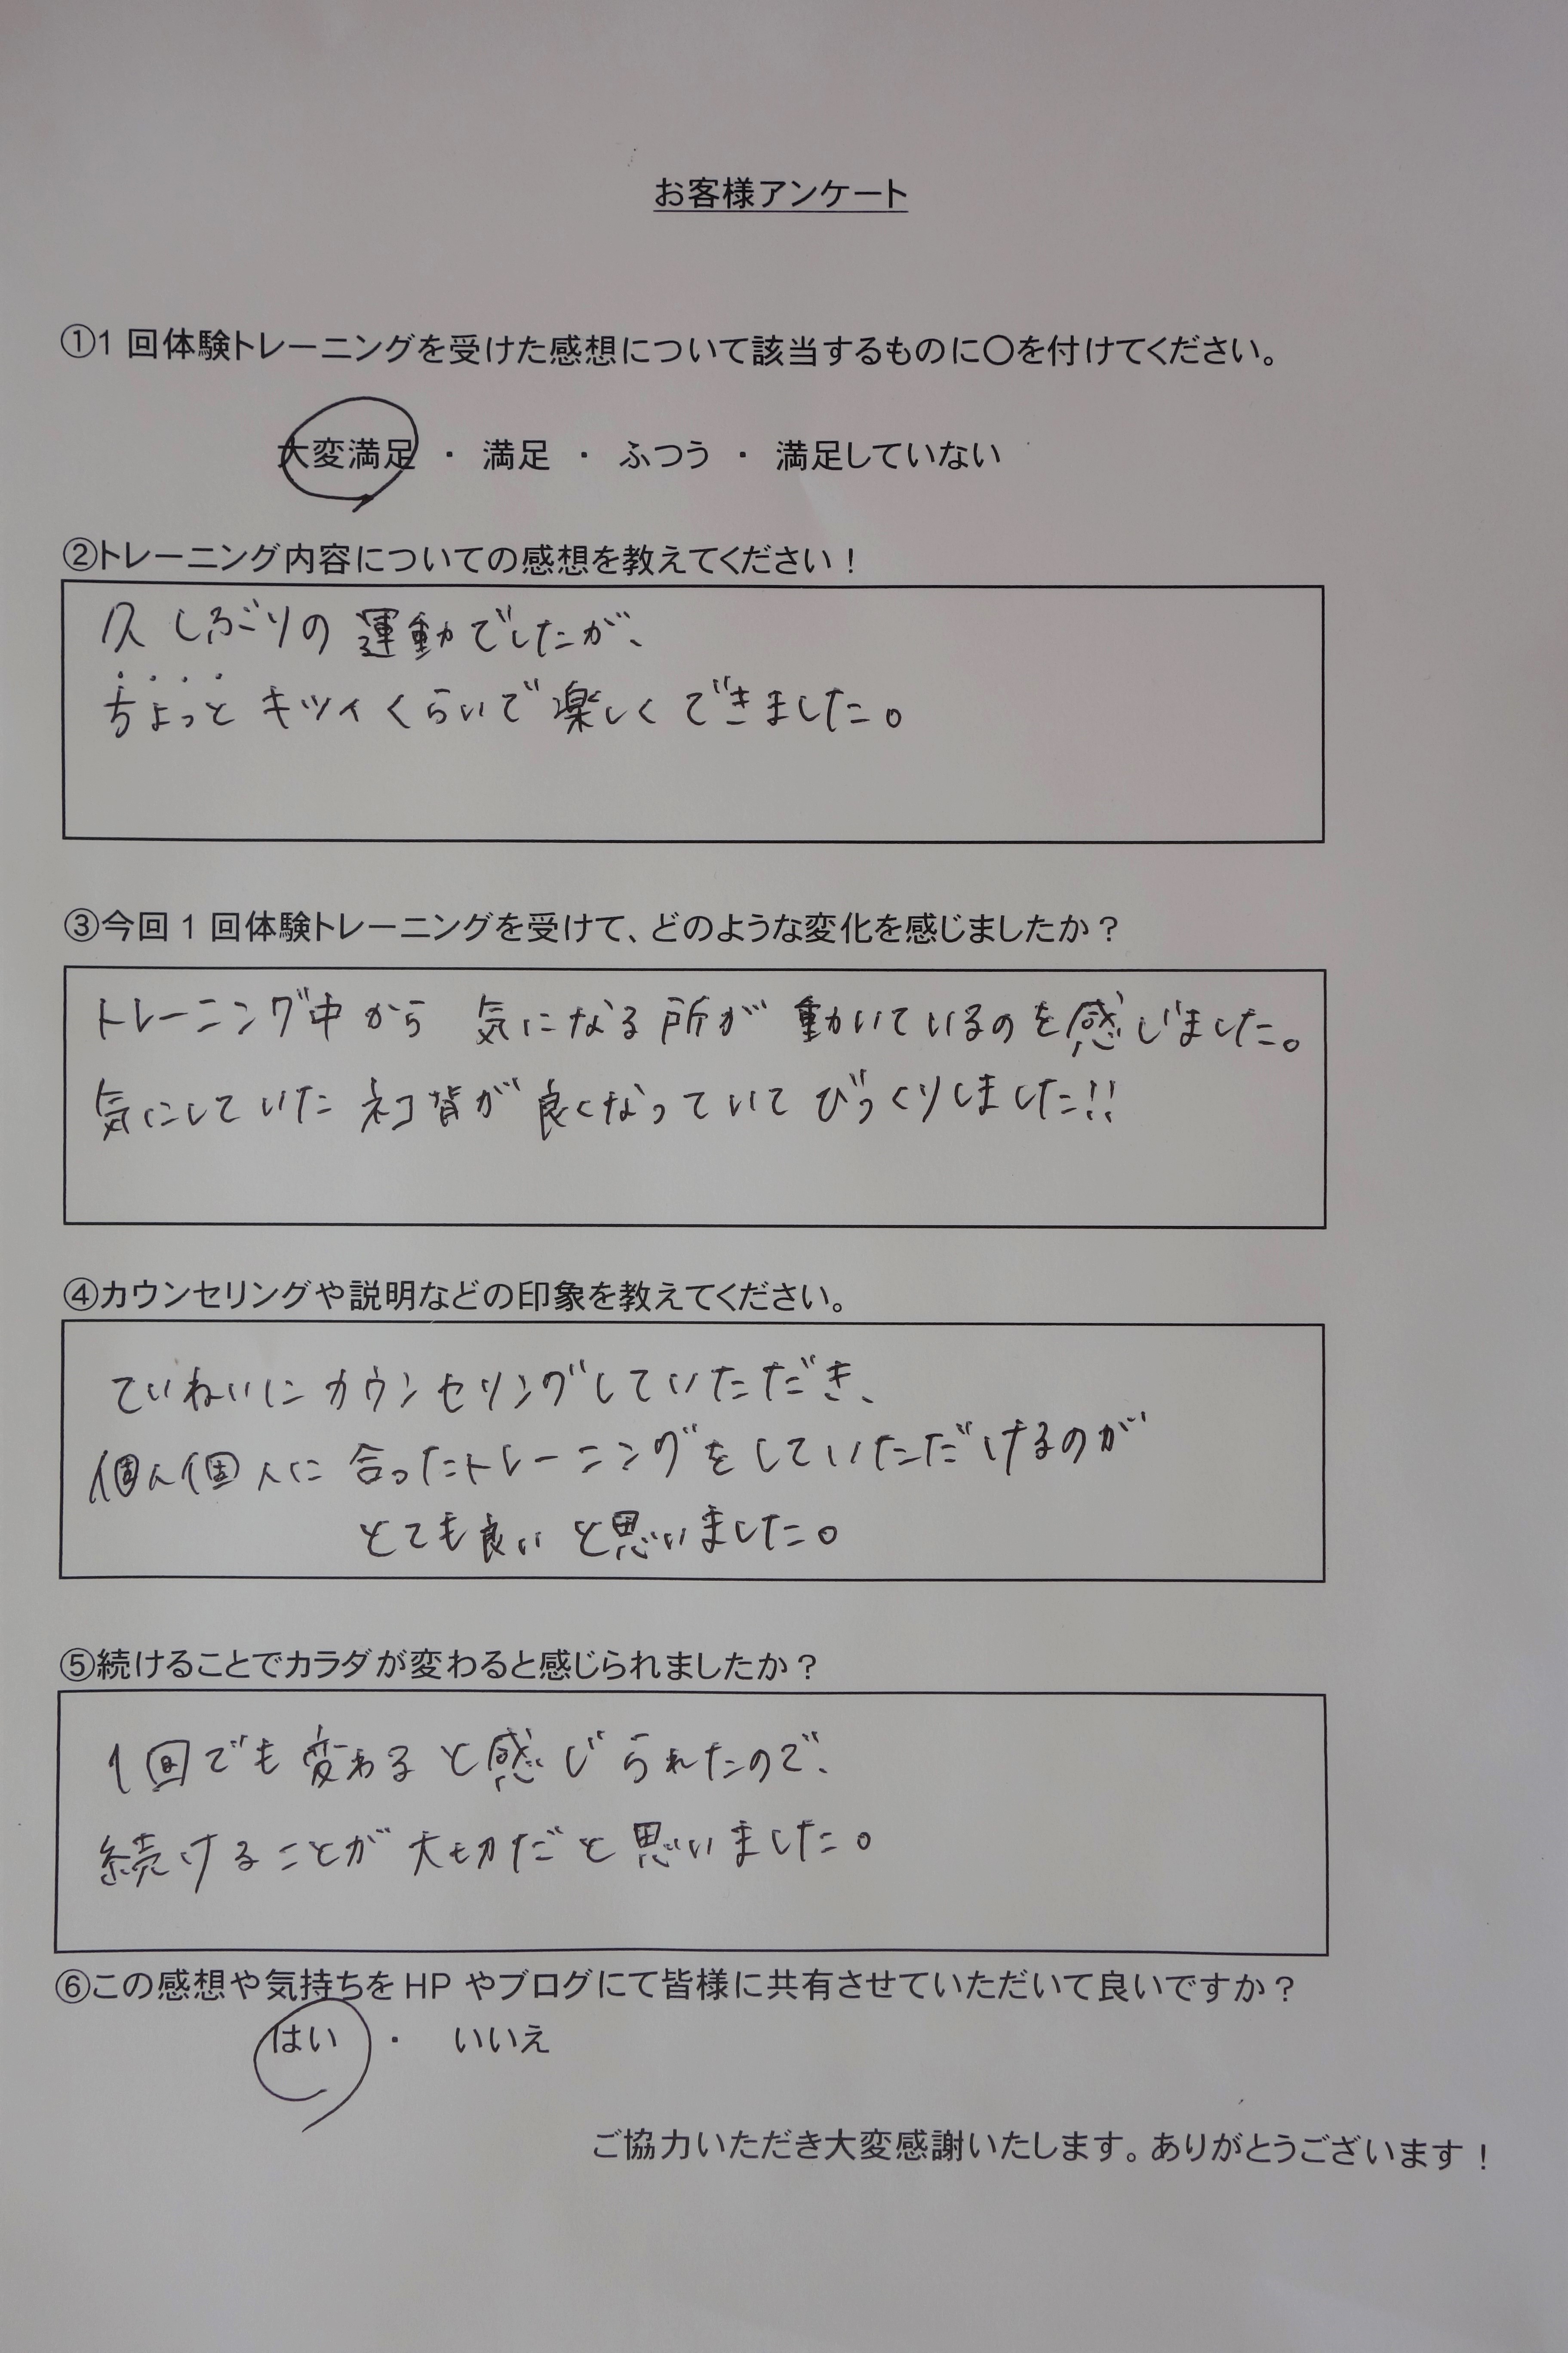 お客様アンケート
①1 回体験トレーニングを受けた感想について該当するものに〇を付けてください。
大変満足 ・ 満足 ・ ふつう ・ 満足していない
②トレーニング内容についての感想を教えてください！
久しぶりの運動でしたが、
ちょっとキツイくらいで楽しくできました。
③今回 1 回体験トレーニングを受けて、どのような変化を感じましたか？
トレーニング中から 気になる所が動いているのを感じました。
気にしていたネコ背が良くなっていてびっくりしました!!
④カウンセリングや説明などの印象を教えてください。
ていねいにカウンセリングしていただき、
個人個人に合ったトレーニングをしていただけるのが
とても良いと思いました。
⑤続けることでカラダが変わると感じられましたか？
1回でも変わると感じられたので、
続けることが大切だと思いました。
⑥この感想や気持ちを HP やブログにて皆様に共有させていただいて良いですか？
はい ・ いいえ
ご協力いただき大変感謝いたします。ありがとうございます！